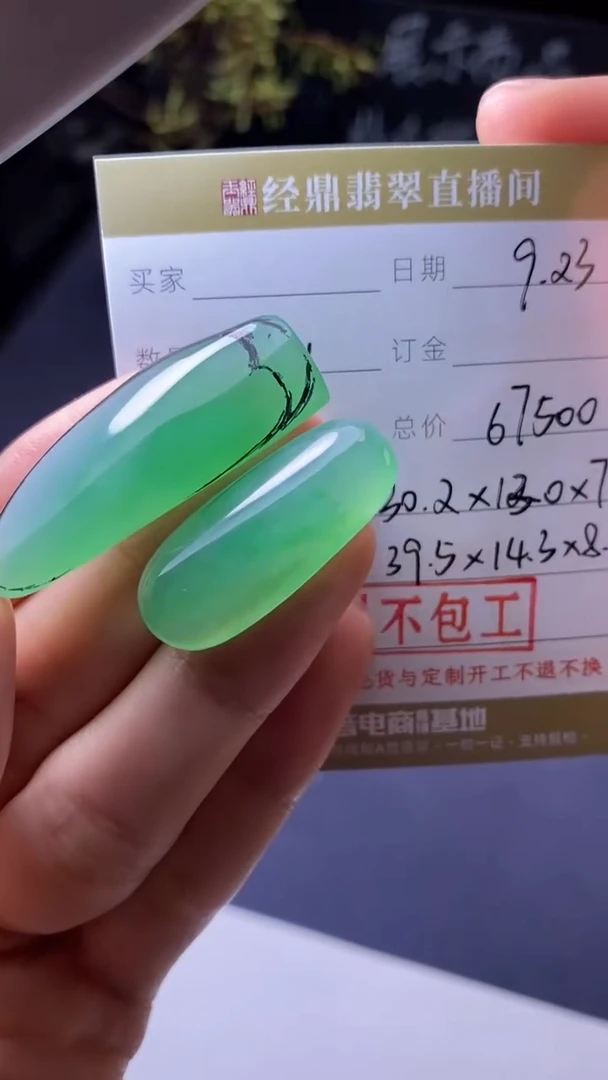 展示商品
经鼎翡翠直播间
买家
日期 9.23
数量
订金
总价 67500
30.2×13.0×7
39.5×14.3×8.
不包工
货与定制开工不退不换
电商 基地